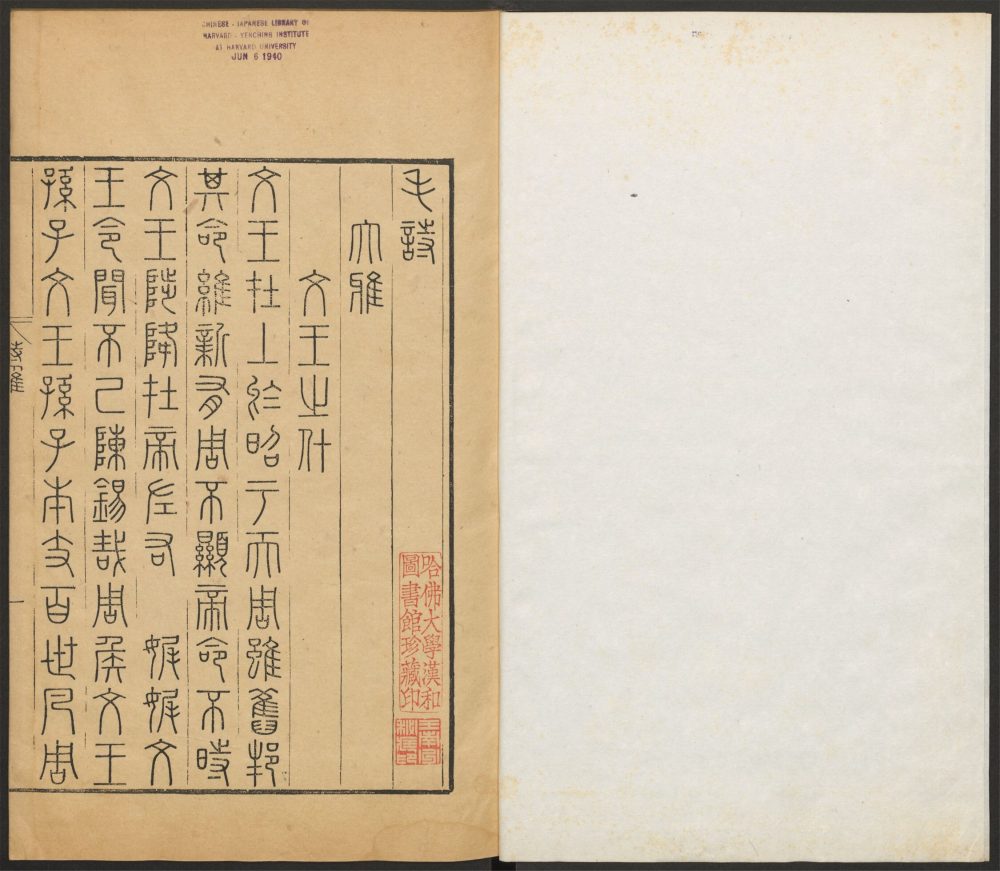 CHINESE - JAPANESE LIBRARY OF
HARVARD - YENCHING INSTITUTE
AT HARVARD UNIVERSITY
JUN 6 1940
毛詩
哈佛大學漢和
圖書館珍藏印
大雅
文王之什
文王在上於昭于天周雖舊邦
其命維新有周不顯帝命不時
文王陟降在帝左右 娓娓文
王令聞不已陳錫哉周侯文王
孫子文王孫子本支百世凡周
一